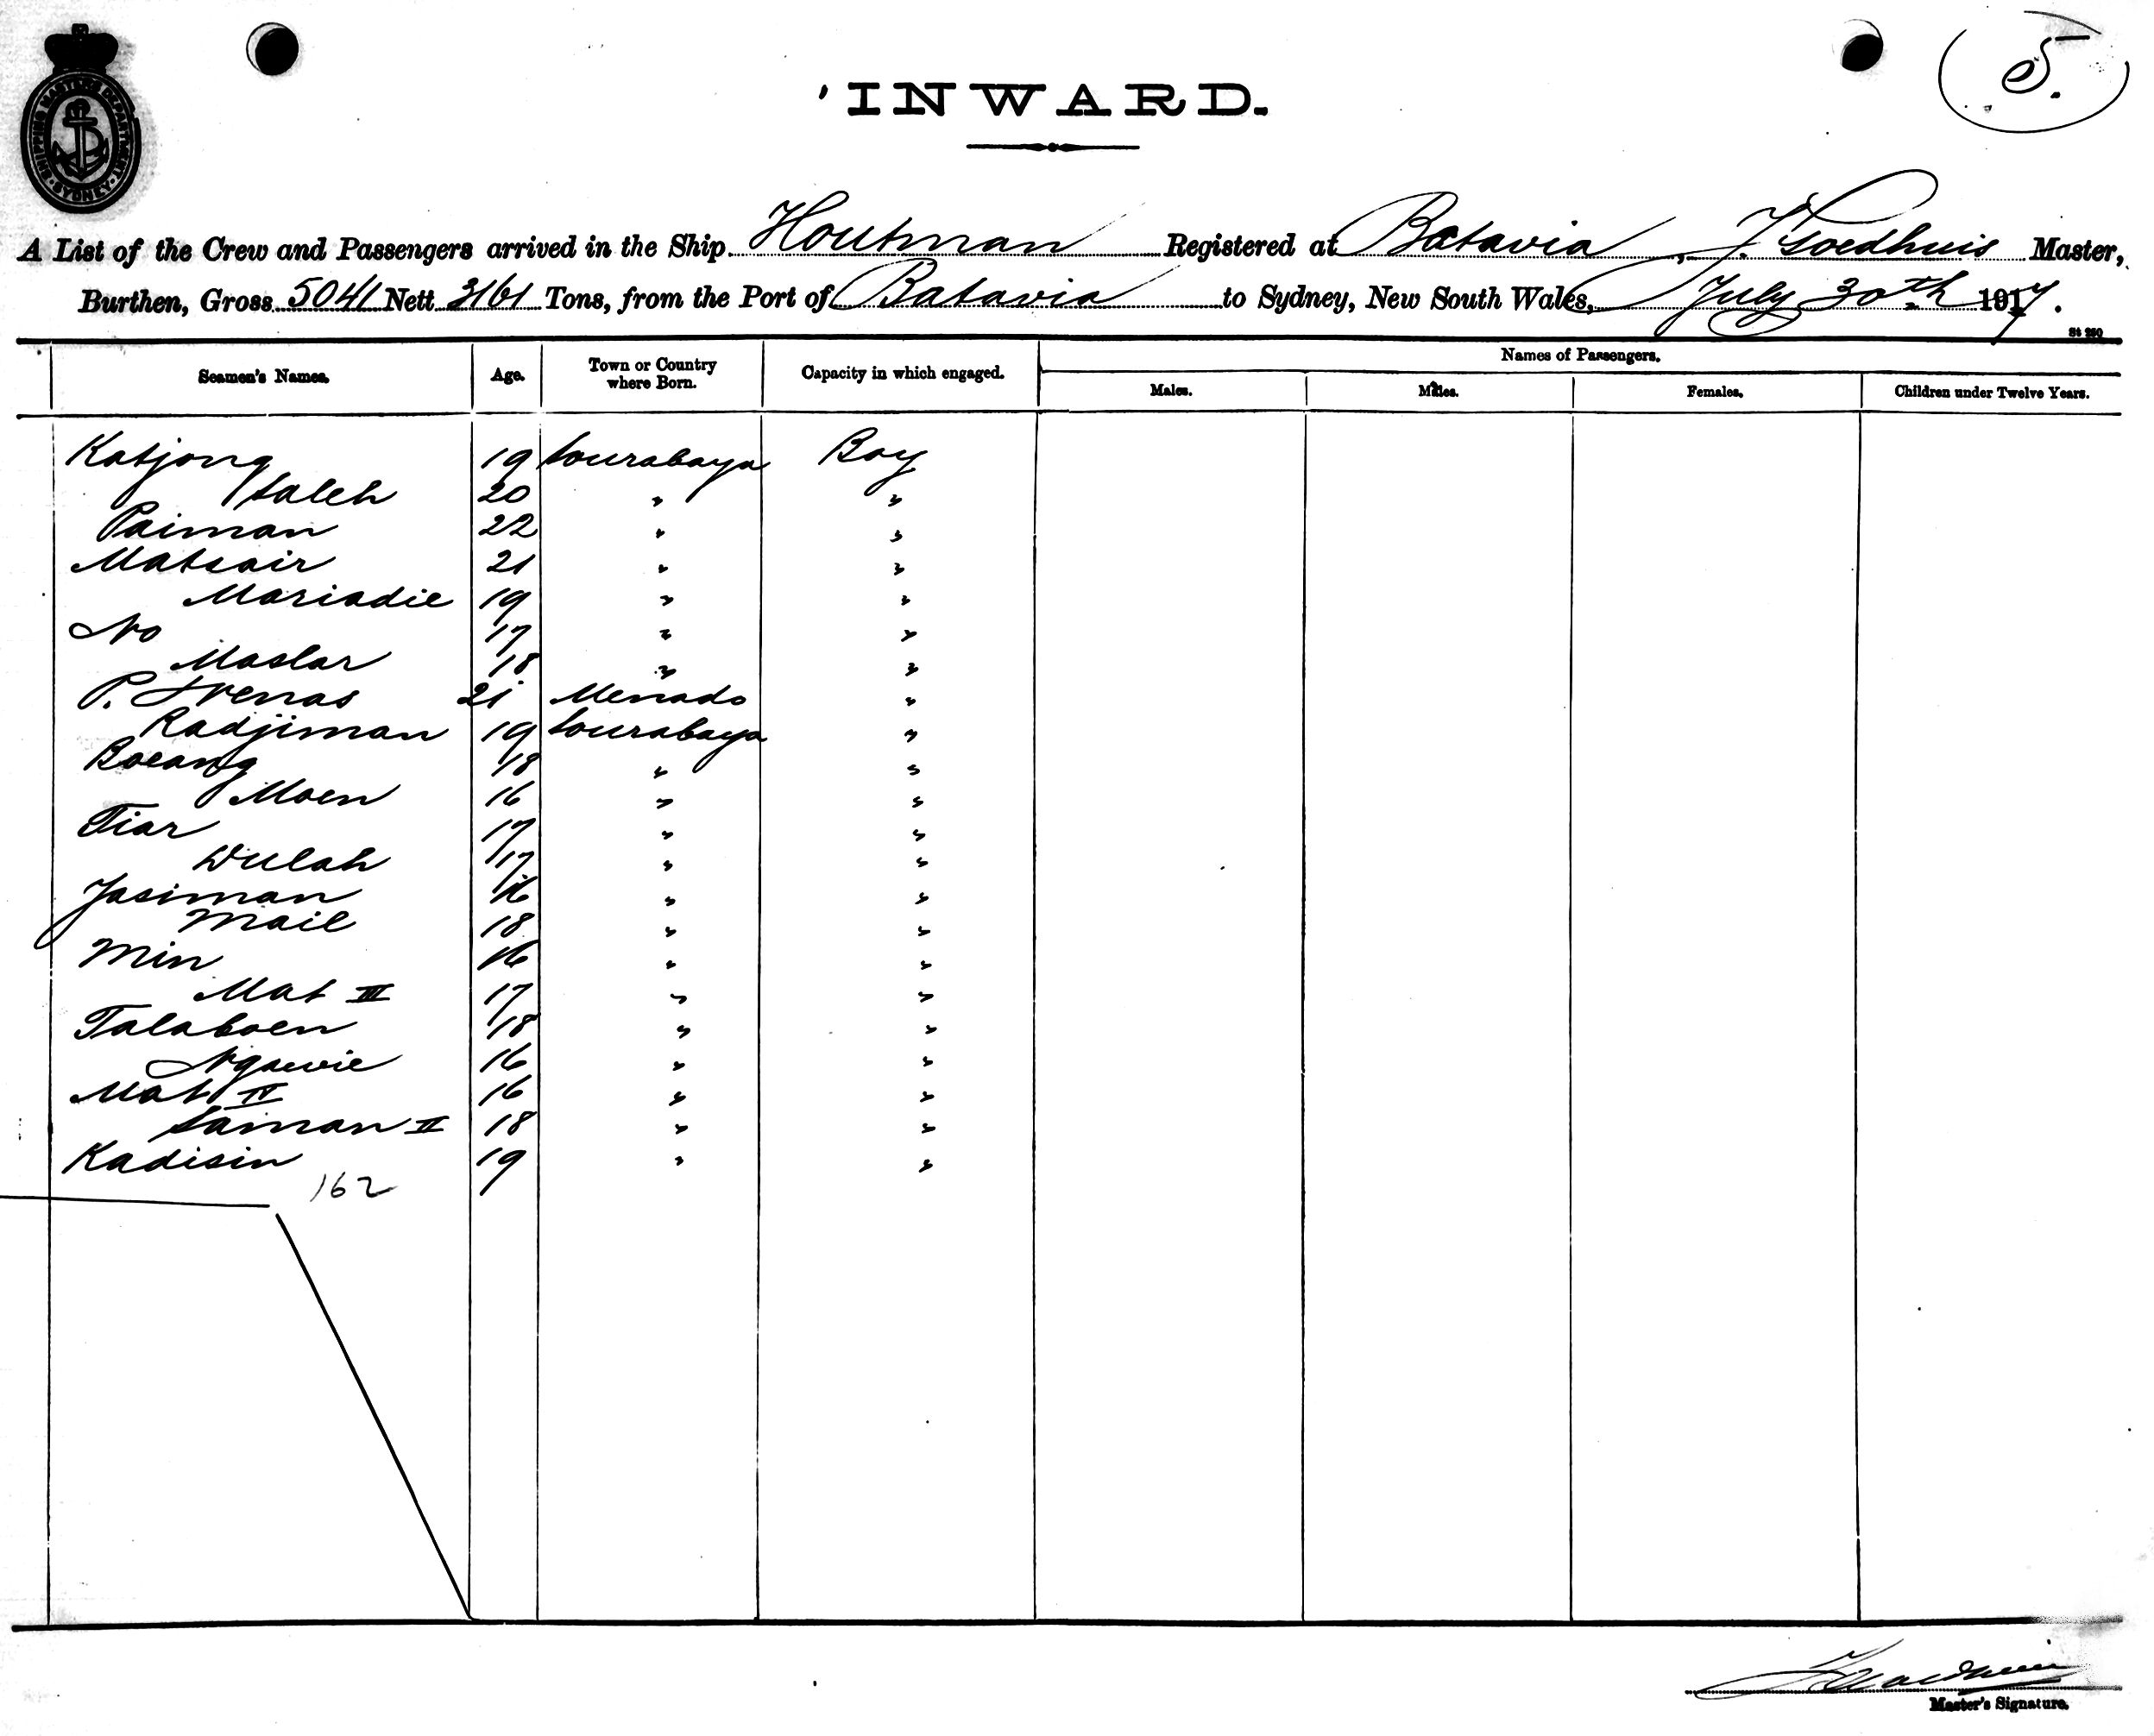 5.
SHIPPING MASTER'S DEPARTMENT
SYDNEY
INWARD.
A List of the Crew and Passengers arrived in the Ship Houtman Registered at Batavia, J. Goedhuis Master,
Burthen, Gross 5041 Nett 3161 Tons, from the Port of Batavia to Sydney, New South Wales, July 30th 1917.
St 260
Seamen's Names. Age. Town or Country where Born. Capacity in which engaged. Names of Passengers.
Males. Males. Females. Children under Twelve Years.
Katjong 19 Sourabaya Boy
Saleh 20 " "
Paiman 22 " "
Matsair 21 " "
Mariadie 19 " "
No 17 " "
Maslar 18 " "
P. 21 Menado "
Radjiman 19 Sourabaya "
Boeang 18 " "
Moen 16 " "
Tiar 17 " "
Wulah 17 " "
Jasiman 16 " "
Mail 18 " "
Min 16 " "
Mat III 17 " "
Talaboen 18 " "
Ngawie 16 " "
Mat IV 16 " "
Saiman II 18 " "
Kadisin 19 " "
162
Master's Signature.